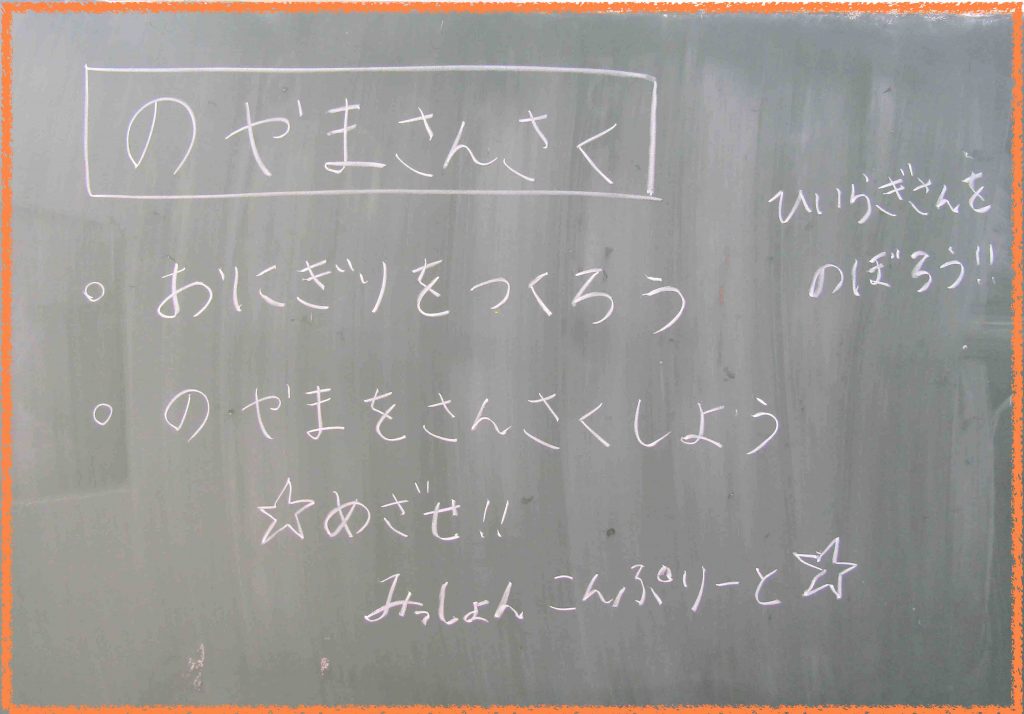 のやまさんさく
ひいらぎさんを
のぼろう!!
◦ おにぎりをつくろう
◦ のやまをさんさくしよう
☆めざせ!!
みっしょん こんぷりーと☆